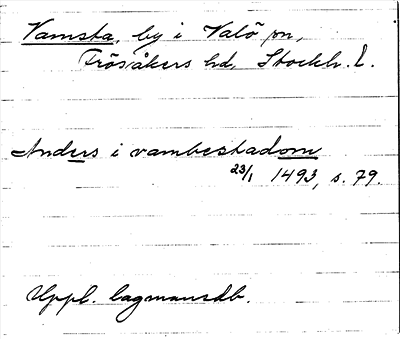 Vamsta, by i Valö sn,
Frösåkers hd, Stockh. l.
Anders i vambestadom
23/1 1493, s. 79.
Uppl. lagmansdb.